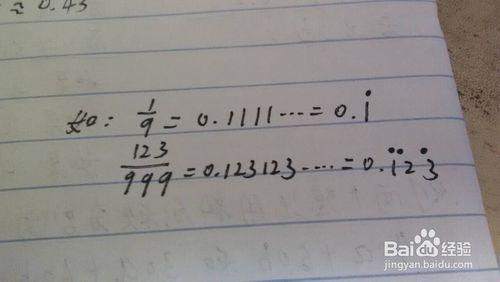 ≈ 0.43
如: 1/9 = 0.1111… = 0.1̇
123/999 = 0.123123…. = 0.1̇̇2̇3̇
Baidu经验
jingyan.baidu.com